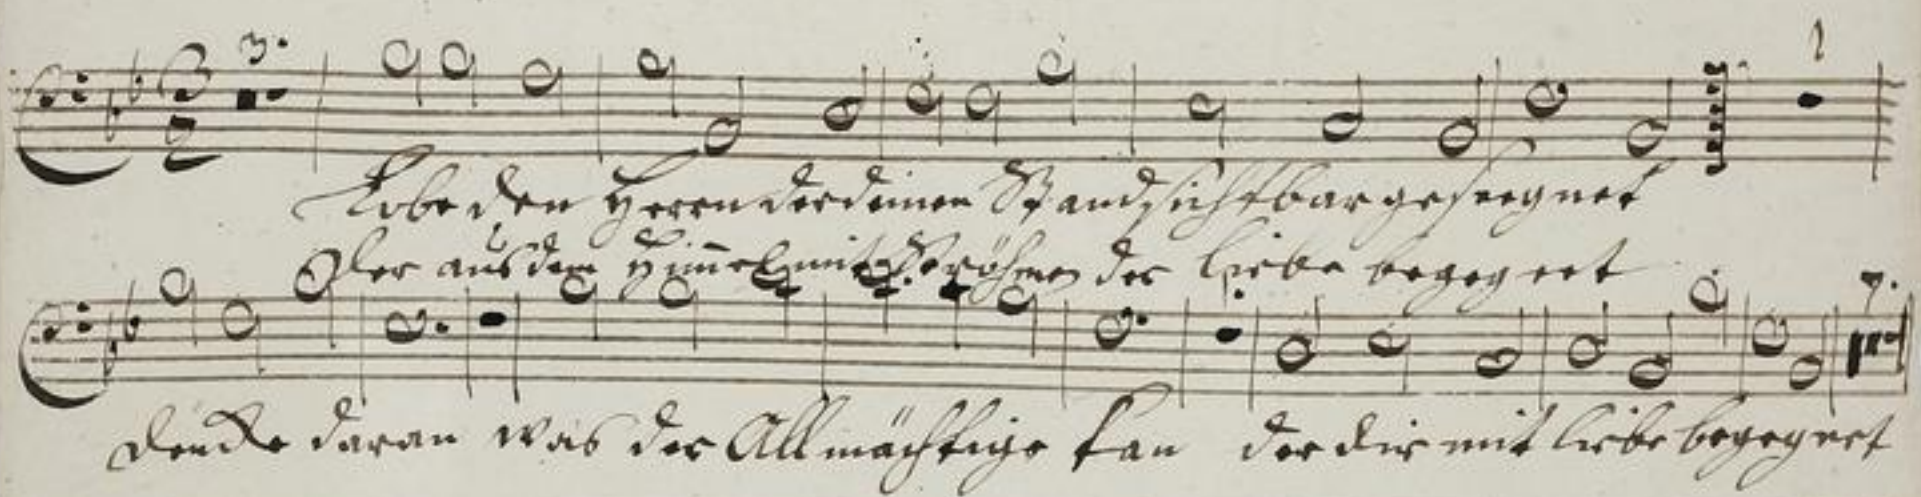 3.
Lobe den Herren der deinen Stand sichtbar geseegnet
Der aus dem Him̄el mit Ströhmen der Liebe begegnet
7.
dencke daran was der Allmächtige kan der dir mit liebe begegnet